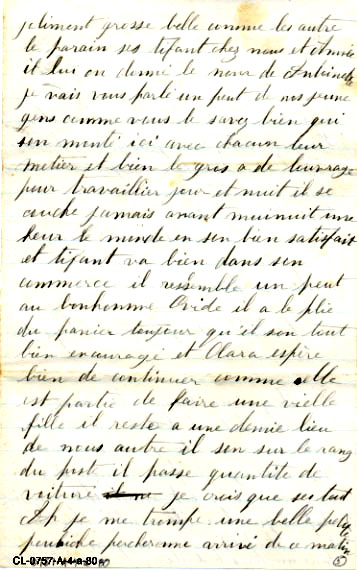 joliment grosse belle comme les autre
le parain ses tifant chez nous et
il lui on donné le nom de Antoinette
je vais vous parlé un peut de nos jeune
gens comme vous le savez bien qui
son monté ici avec chacun leur
metier et bien le gros a de louvrage
pour travaillier jour et nuit il se
couche jamais avant meinuit une
heur le monde en son bien satisfait
et tifant va bien dans son
commerce il ressemble un peut
au bonhomme Ovide il a le plie
du panier toujour qu'il son tout
bien encouragé et Clara espère
bien de continuer comme elle
est partie de faire une vielle
fille il reste a une demie lieu
de nous autre il son sur le rang
du poste il passe quantité de
voiture je crois que ses tout
je me trompe une belle petite
pouliche percheronne arrivé de ce matin
CL-0757-A-4-a-80
3